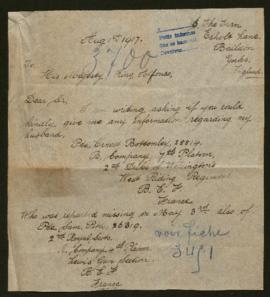 6 The Fern
Esholt Lane
Baildon
Yorks.
England.
Aug 1st 1917.
3700
To
His Majesty King Alfonso,
Dear Sir,
I am writing asking if you could
kindly give me any information regarding my
husband,
Pte. Ernest Bottomley
B. Company 7th Platoon,
2nd Duke of Wellingtons
West Riding Regiment
B. E. F
France
Who was reported missing on May 3rd also of
Pte. Sam. 26319.
2nd Royal Scots
Company 4th Platoon
Lewis Gun Section
B. E. F
France
voir fiche